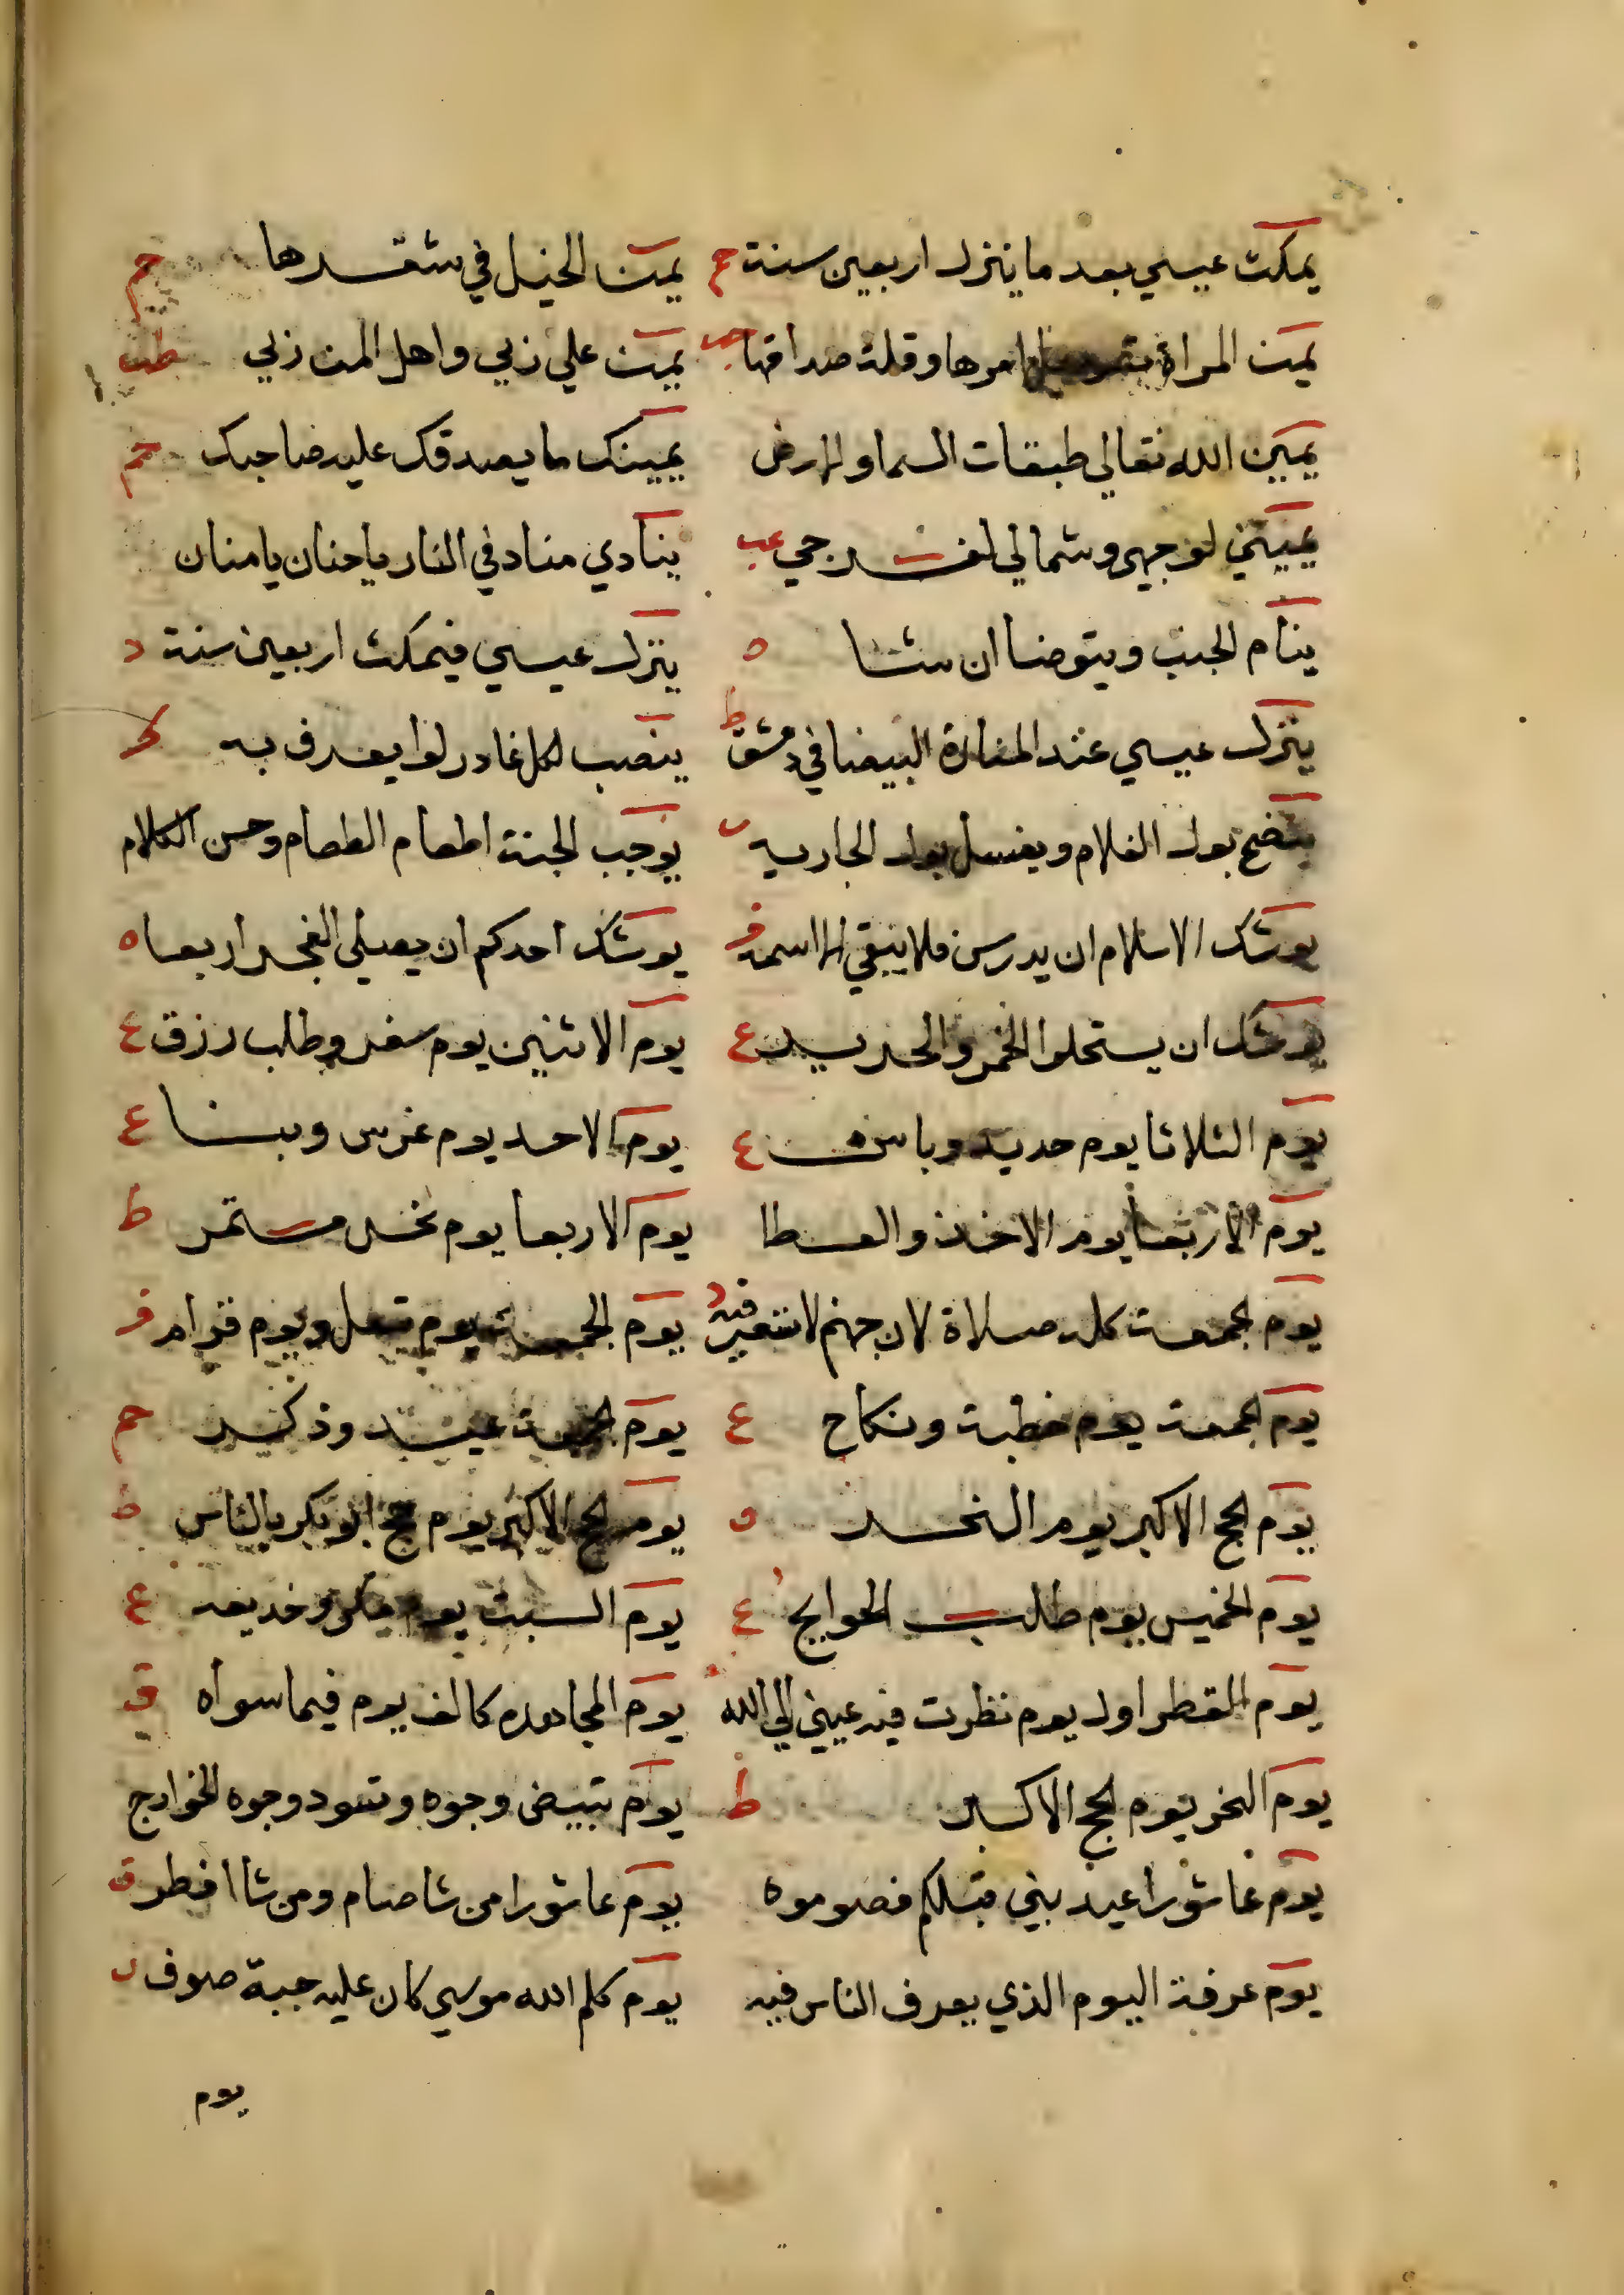 يمكث عيسي بعد ما ينزل اربعين سنة حم يمن الخيل في شقرها حم
يمن المراة امرها وقلة صداقها حب يمن علي زبي واهل اليمن زبي طب
يمين الله تعالي طبقات السما والارض يمينك ما يصدقك عليه صاحبك حم
يميني لوجهي وشمالي لفرجي عب ينادي مناد في النار يا حنان يا منان
ينام الجنب ويتوضا ان شا ه ينزل عيسي فيمكث اربعين سنة د
ينزل عيسي عند المنارة البيضا في دمشق ط ينصب لكل غادر لوا يعرف به ط
ينضح بول الغلام ويغسل بول الجاريه يوجب الجنة اطعام الطعام وحسن الكلام
يوشك الاسلام ان يدرس فلا يبقي الا اسمه فر يوشك احدكم ان يصلي الفجر اربعا ه
يوشك ان يستحلوا الخمر والحرير ع يوم الاثنين يوم سفر وطلب رزق ع
يوم الثلاثا يوم حديد وباس ع يوم الاحد يوم غرس وبنا ع
يوم الاربعا يوم الاخذ والعطا يوم الاربعا يوم نحس مستمر ط
يوم الجمعة كله صلاة لان جهنم لا تسعر فيه د يوم الجمعة يوم ويوم فر
يوم الجمعة يوم خطبة ونكاح ع يوم الجمعة عيد وذكر حم
يوم الحج الاكبر يوم النحر يوم الحج الاكبر يوم حج ابو بكر بالناس ط
يوم الخميس يوم طلب الحوايج ع يوم السبت يوم مكر وخديعه ع
يوم القطر اول يوم نظرت فيه عيني الي الله يوم المجاهدم كالف يوم فيما سواه ق
يوم النحر يوم الحج الاكبر ط يوم تبيض وجوه وتسود وجوه الخوارج
يوم عاشورا عيد بني قبلكم فصوموه يوم عاشورا من شا صام ومن شا افطر ق
يوم عرفة اليوم الذي يعرف الناس فيه يوم كلم الله موسي كان عليه جبة صوف
يوم